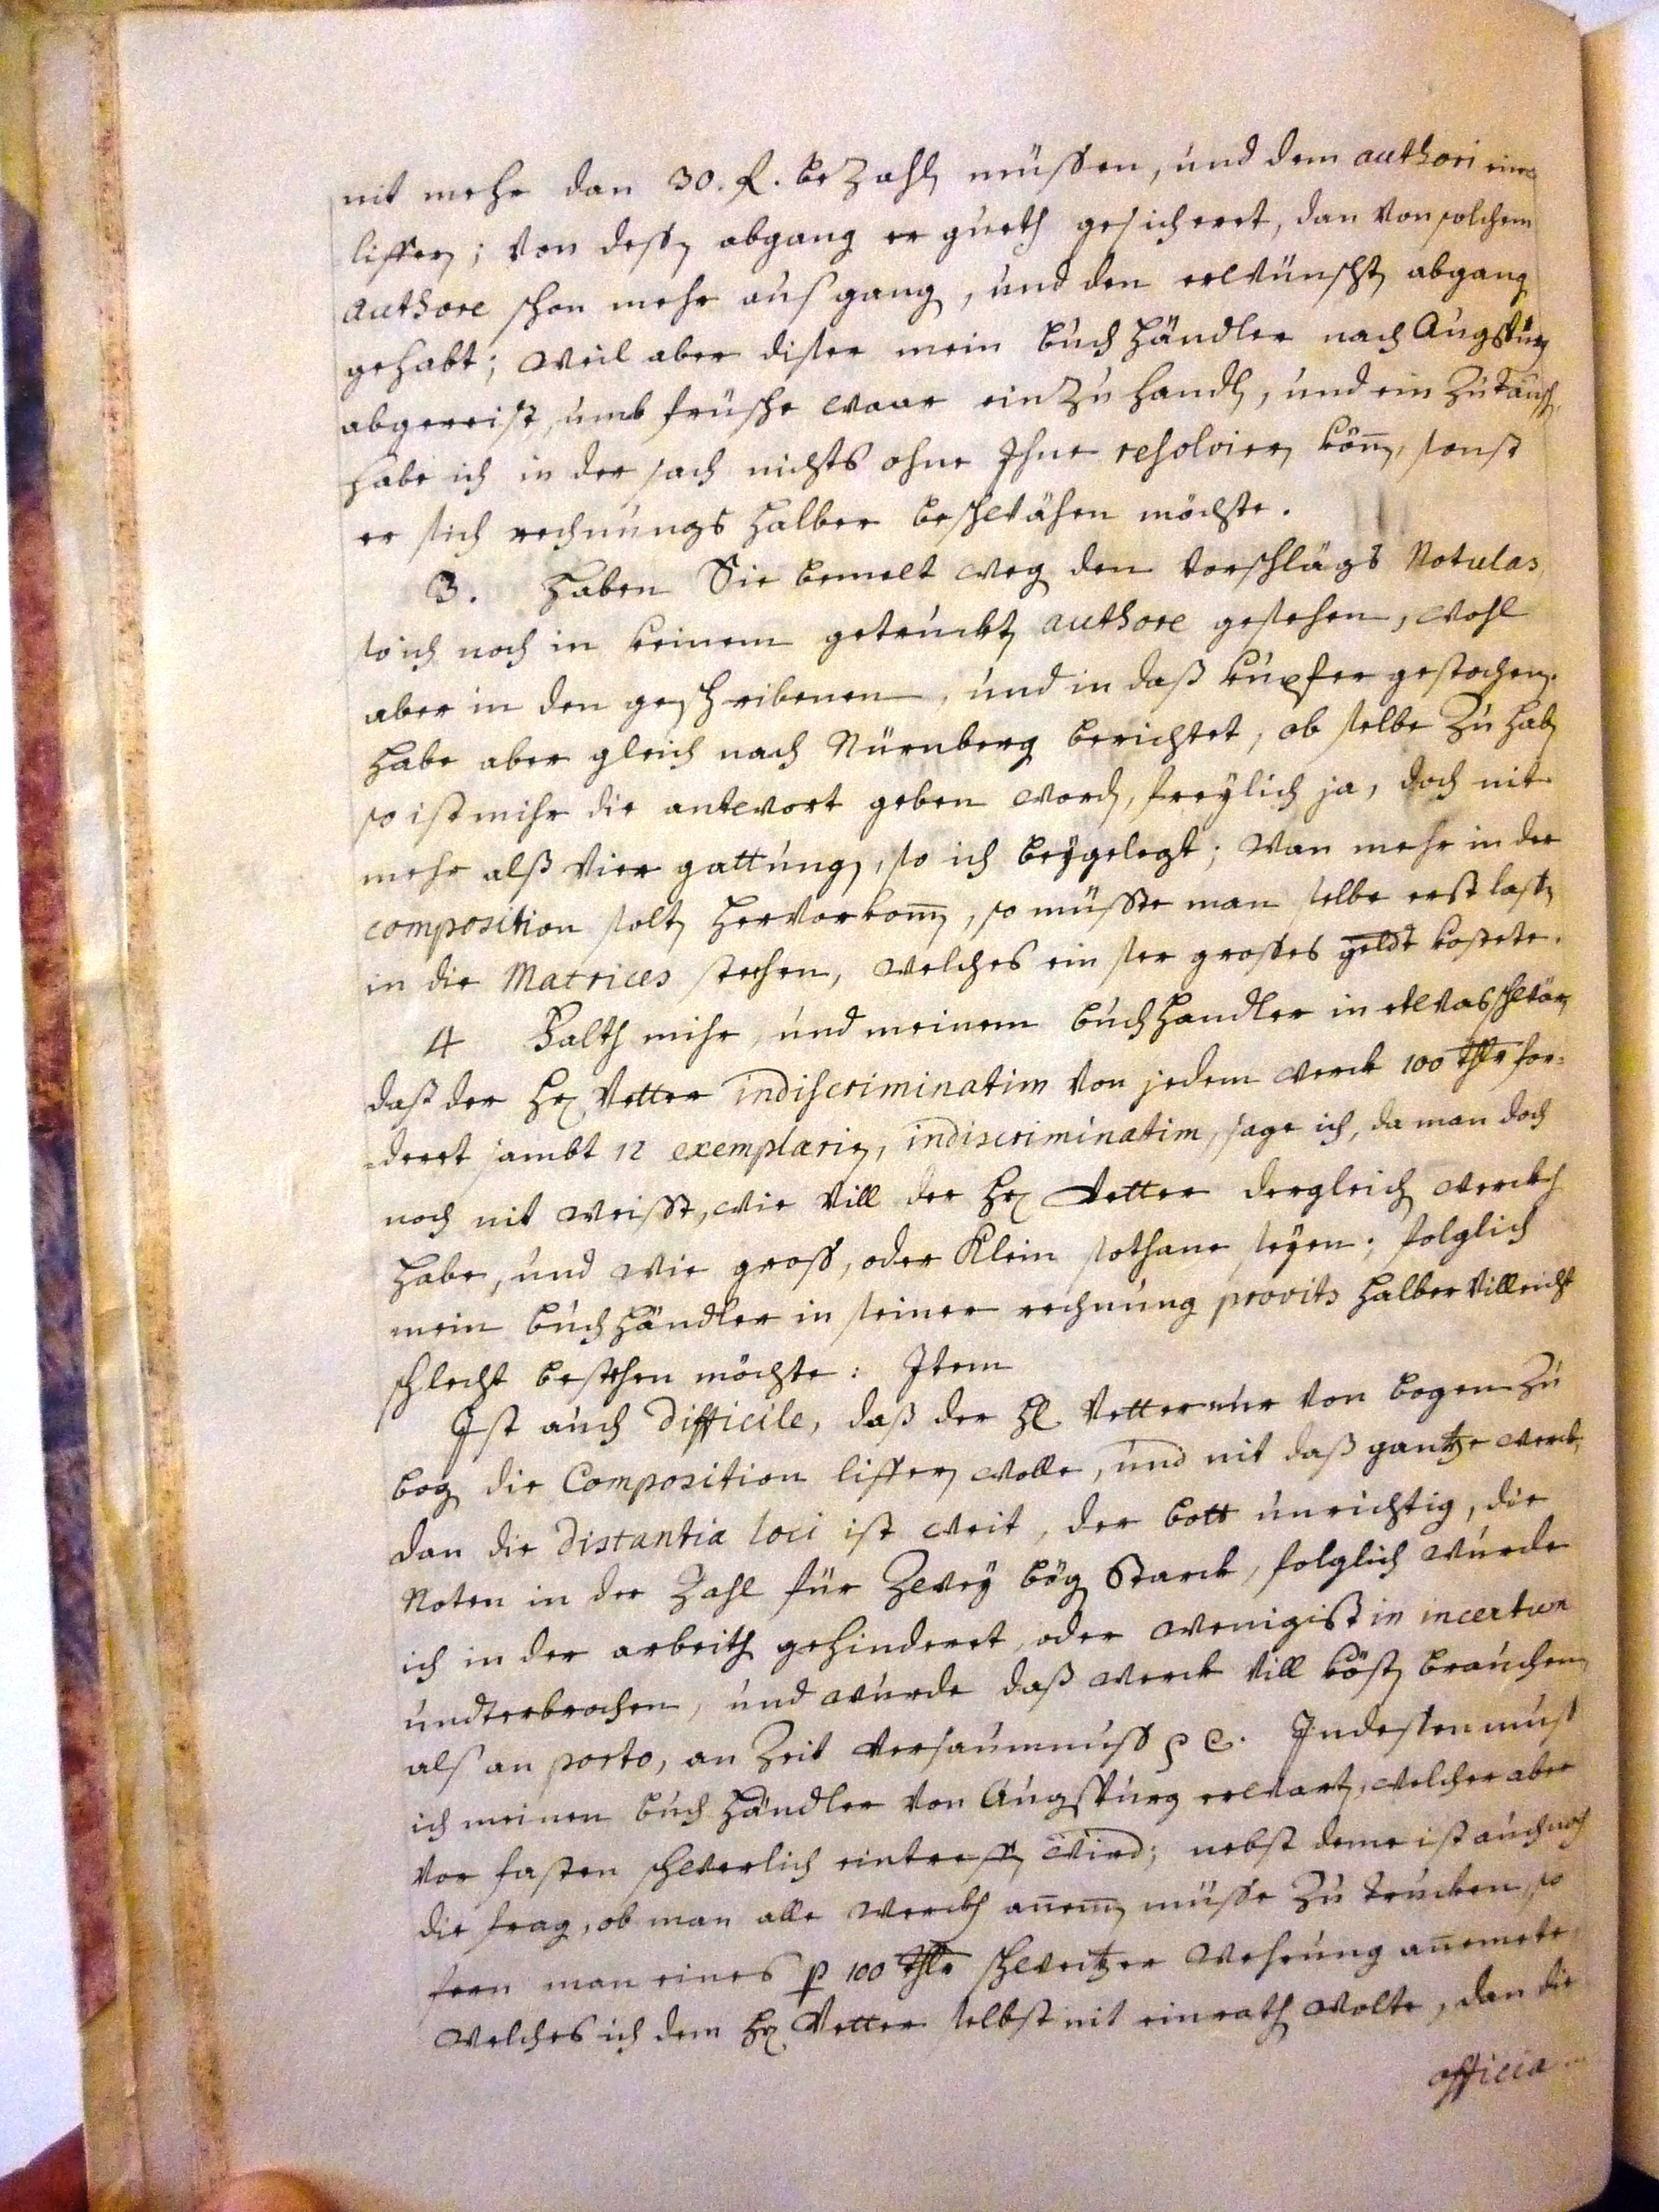 nit mehr dan 30. fl. bezahlen müssen, und dem authori eine
liffern; von dessen abgang er gueth gesicheret, dan von solchem
authore schon mehr ausgang, und den erwünschten abgang
gehabt; weil aber diser mein buchhändler nach Augspurg
abgereist, umb frische waar einzuhandlen, und ein zutauschen,
habe ich in der sach nichts ohne Ihne resolvieren können, sonst
er sich rechnungs halber beschwähren möchte.
3. Haben Sie bemelt wegen den vorschlägs Notulas,
so ich noch in keinem getruckten authore gesehen, wohl
aber in den geschribenen, und in daß kupfer gestochen.
habe aber gleich nach Nürnberg berichtet, ob selbe zu haben
so ist mihr die antwort geben worden, freylich ja, doch nit
mehr alß vier gattungen, so ich beygelegt; wan mehr in der
composition solten hervorkommen, so müsste man selbe erst lassen
in die Matrices stechen, welches ein ser grosses geldt kostete.
4 Falth mihr, und meinem buchhandler in etwas schwär,
daß der Hr Vetter indiscriminatim von jedem werck 100 thlr for=
=deret sambt 12 exemplarien, indiscriminatim, sage ich, da man doch
noch nit weisst, wie vill der Hr Vetter dergleichen werckh
habe, und wie gross, oder klein sothane seyen; folglich
mein buchhändler in seiner rechnung provits halber villeicht
schlecht bestehen möchte: Item
Ist auch difficile, daß der Hr Vetter nur von bogen zu
bogen die Composition liffern wolle, und nit daß gantze werck,
dan die distantia loci ist weit, der bott unrichtig, die
Noten in der Zahl für zwey bögen starck, folglich wurde
ich in der arbeith gehinderet, oder wenigist in incertum
underbrochen, und wurde daß werck vill kösten brauchen,
als an porto, an Zeit versaumnuss p c. Indessen muss
ich meinen buchhändler von Augspurg erwarten, welcher aber
vor fasten schwerlich eintreffen wird; nebst deme ist auch noch
die frag, ob man alle werckh annemmen müsse zu trucken, so
fern man eines p 100 thlr schweitzer wehrung annemete,
welches ich dem Hr Vetter selbst nit einrathen wolte, dan die
officia